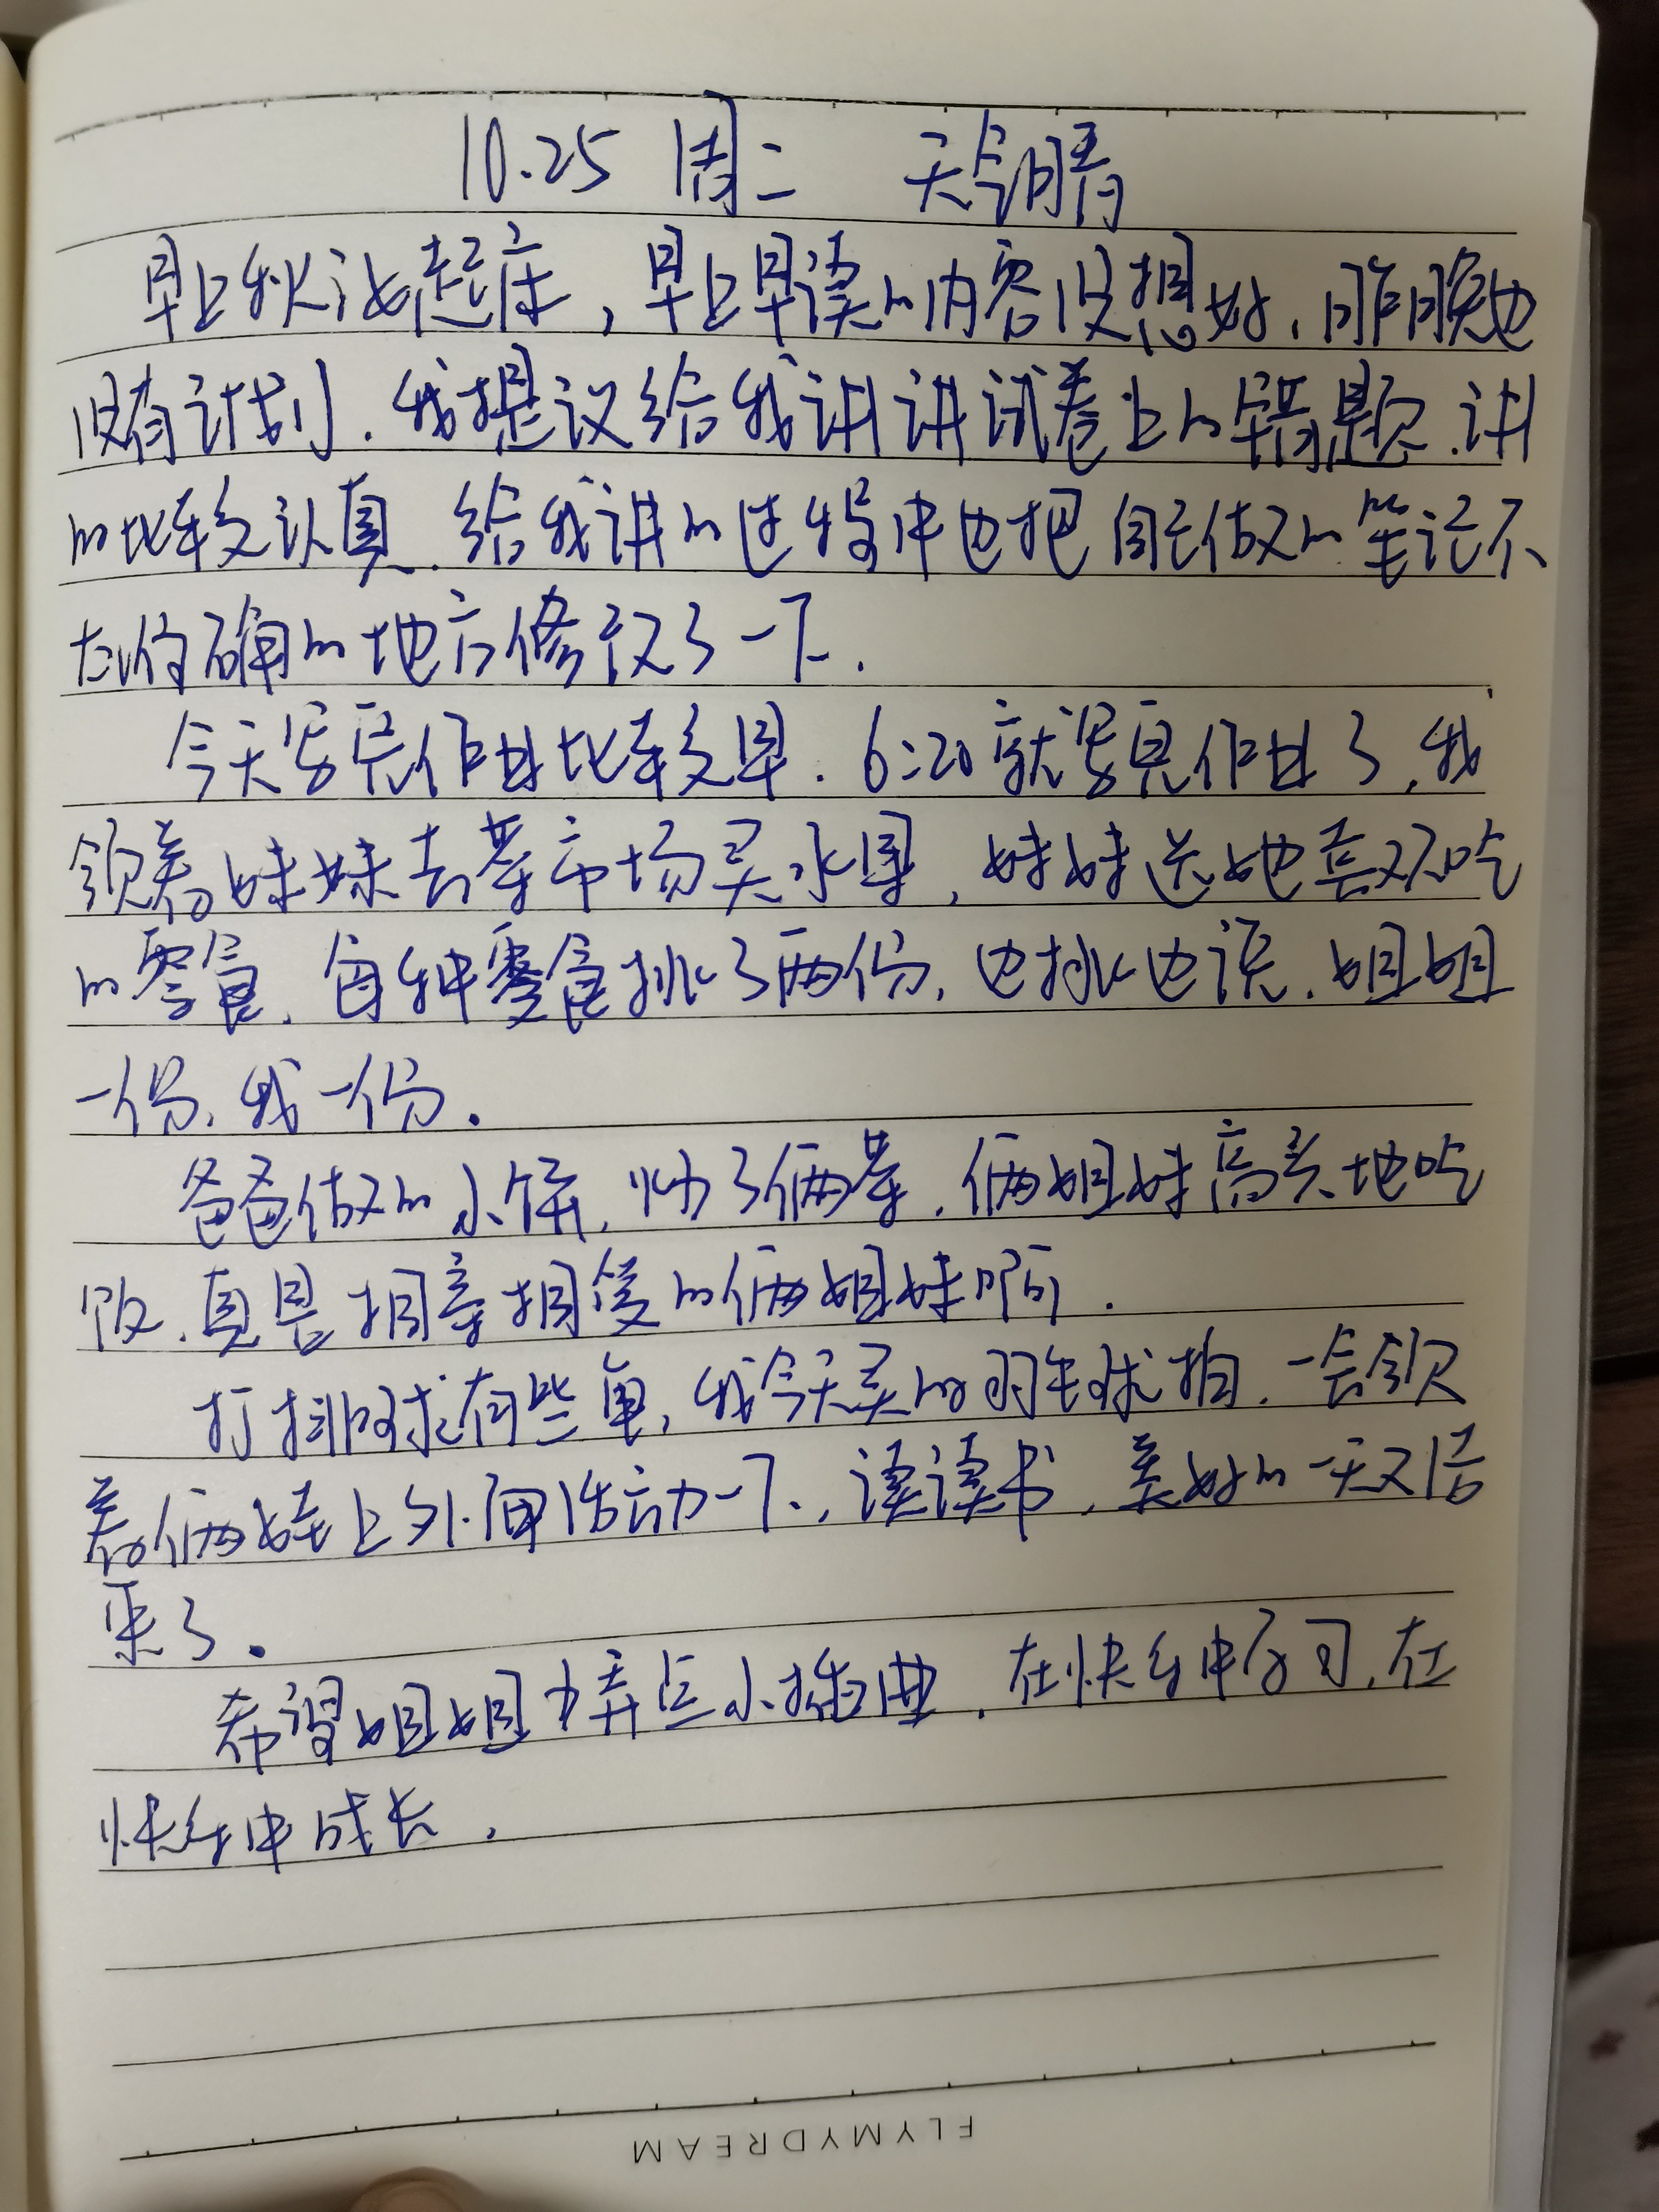 10.25 周二 天气晴
早上秋让起床，早上早读的内容没想好，昨晚也
没有计划，我提议给我讲讲试卷上的错题，讲
的比较认真，给我讲的过程中也把自己做的笔记不
太准确的地方修改了一下.
今天写完作业比较早，6:20就写完作业了，我
领着妹妹去菜市场买水果，妹妹选她喜欢吃
的零食，每种零食挑了两份，边挑边说，姐姐
一份，我一份.
爸爸做的小饼，炒了俩菜，俩姐妹高兴地吃
饭，真是相亲相爱的俩姐妹啊.
打排球有些单，我今天买的羽毛球拍，一会领
着俩娃上外面活动一下，读读书，美好的一天又结
束了.
希望姐姐少弄点小插曲，在快乐中学习，在
快乐中成长，
FLYMYDREAM